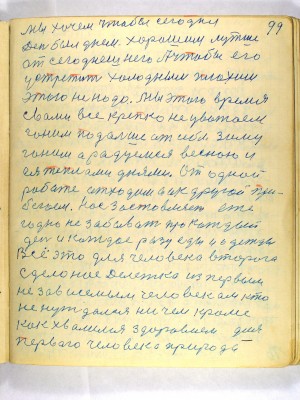 99
Мы хочем чтобы сегодня
Ден был днем. хорошим лутше
от сегоднешнего А чтобы его
холодным плохим
этого не надо. Мы этого время
с вами все крепко не уважаем
гоним подальше от себя зиму
гоним а радуемся весною и
теплами днями. От одной
работе отходим а к другой при-
бегаем. Нас заставляет еже
годно не забывать про каждый
ден и каждое разу еды и одежды
Всё это для человека второго
сделоное Дележка из первым
не зависемым человекам кто
не нуждался ни чем кроме
как хвалился здоровием для
первого человека природа